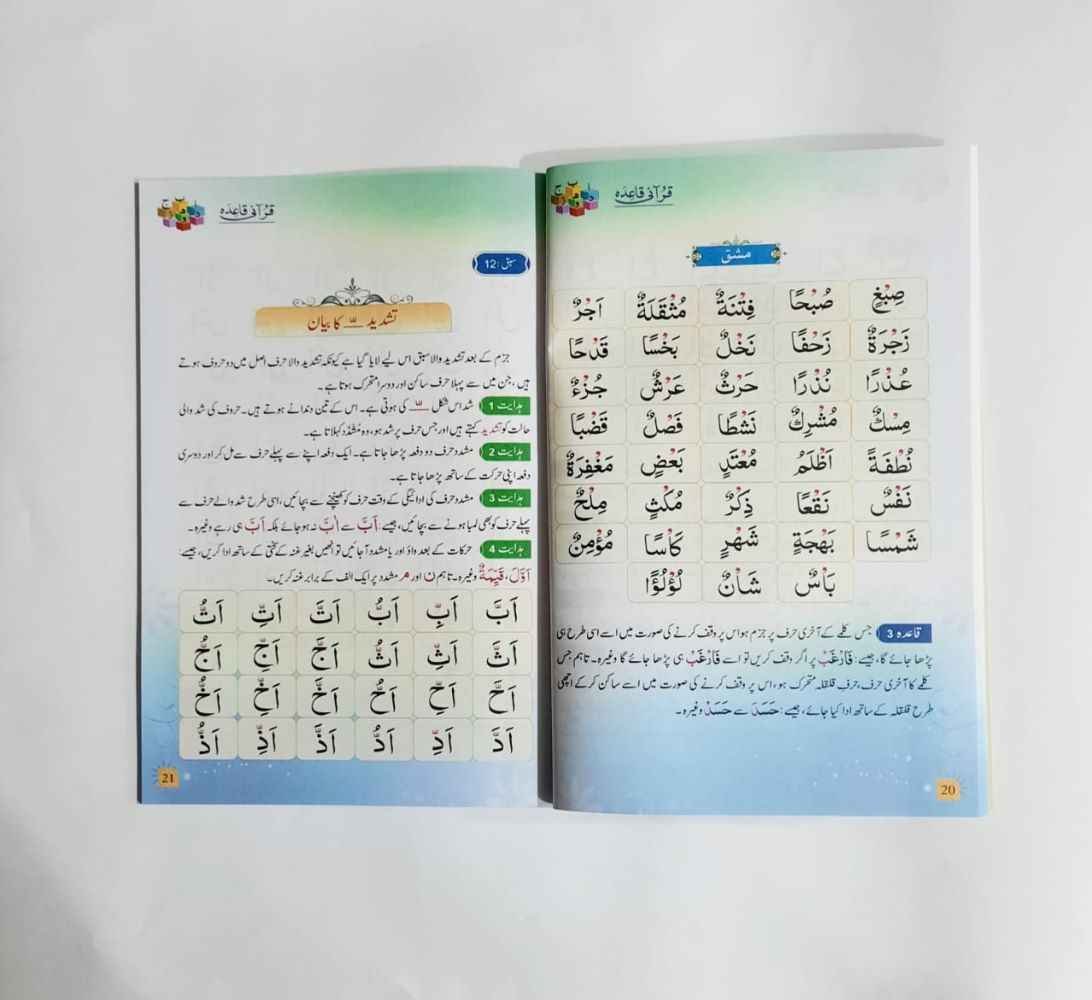 قرآنی قاعدہ
مشق
صِبْغٍ صُبْحًا فِتْنَةٌ مُثْقَلَةٌ اَجْرٌ
زَجْرَةٌ زَحْفًا نَخْلٌ بَخْسًا قَدْحًا
عُذْرًا نُذْرًا حَرْثٌ عَرْشٌ جُزْءٌ
مِسْكٌ مُشْرِكٌ نَشْطًا فَصْلٌ قَضْبًا
نُطْفَةٌ اَظْلَمُ مُعْتَدٍ بَعْضٍ مَغْفِرَةٌ
نَفْسٌ نَقْعًا ذِكْرٌ مُكْثٍ مِلْحٌ
شَمْسًا بَهْجَةٍ شَهْرٍ كَأْسًا مُؤْمِنٌ
بَأْسٌ شَأْنٌ لُؤْلُؤًا
قاعدہ 3 جس کلمے کے آخری حرف پر جزم ہو اس پر وقف کرنے کی صورت میں اسے اسی طرح ہی
پڑھا جائے گا، جیسے: فَارْغَبْ پر اگر وقف کریں تو اسے فَارْغَبْ ہی پڑھا جائے گا وغیرہ۔ تاہم جس
کلمے کا آخری حرف، حرفِ قلقلہ متحرک ہو، اس پر وقف کرنے کی صورت میں اسے ساکن کر کے اچھی
طرح قلقلہ کے ساتھ ادا کیا جائے، جیسے: حَسَدَ سے حَسَدْ وغیرہ۔
20
قرآنی قاعدہ
سبق :12
تشدید ـّـ کا بیان
جزم کے بعد تشدید والا سبق اس لیے لایا گیا ہے کیونکہ تشدید والا حرف اصل میں دو حروف ہوتے
ہیں، جن میں سے پہلا حرف ساکن اور دوسرا متحرک ہوتا ہے۔
ہدایت 1 شد اس شکل ـّـ کی ہوتی ہے۔ اس کے تین دندانے ہوتے ہیں۔ حروف کی شد والی
حالت کو تشدید کہتے ہیں اور جس حرف پر شد ہو، وہ مُشَدَّد کہلاتا ہے۔
ہدایت 2 مشدد حرف دو دفعہ پڑھا جاتا ہے۔ ایک دفعہ اپنے سے پہلے حرف سے مل کر اور دوسری
دفعہ اپنی حرکت کے ساتھ پڑھا جاتا ہے۔
ہدایت 3 مشدد حرف کی ادائیگی کے وقت حرف کو کھینچنے سے بچائیں، اسی طرح شد والے حرف سے
پہلے حرف کو بھی لمبا ہونے سے بچائیں، جیسے: اَبَّ سے اٰبَّ نہ ہو جائے بلکہ اَبَّ ہی رہے وغیرہ۔
ہدایت 4 حرکات کے بعد واؤ اور یا مشدد آجائیں تو انھیں بغیر غنہ کے سختی کے ساتھ ادا کریں، جیسے:
اَوَّلَ، قَيِّمَةٌ وغیرہ۔ تاہم ن اور م مشدد پر ایک الف کے برابر غنہ کریں۔
اَبَّ اَبِّ اَبُّ اَتَّ اَتِّ اَتُّ
اَثَّ اَثِّ اَثُّ اَجَّ اَجِّ اَجُّ
اَحَّ اَحِّ اَحُّ اَخَّ اَخِّ اَخُّ
اَدَّ اَدِّ اَدُّ اَذَّ اَذِّ اَذُّ
21